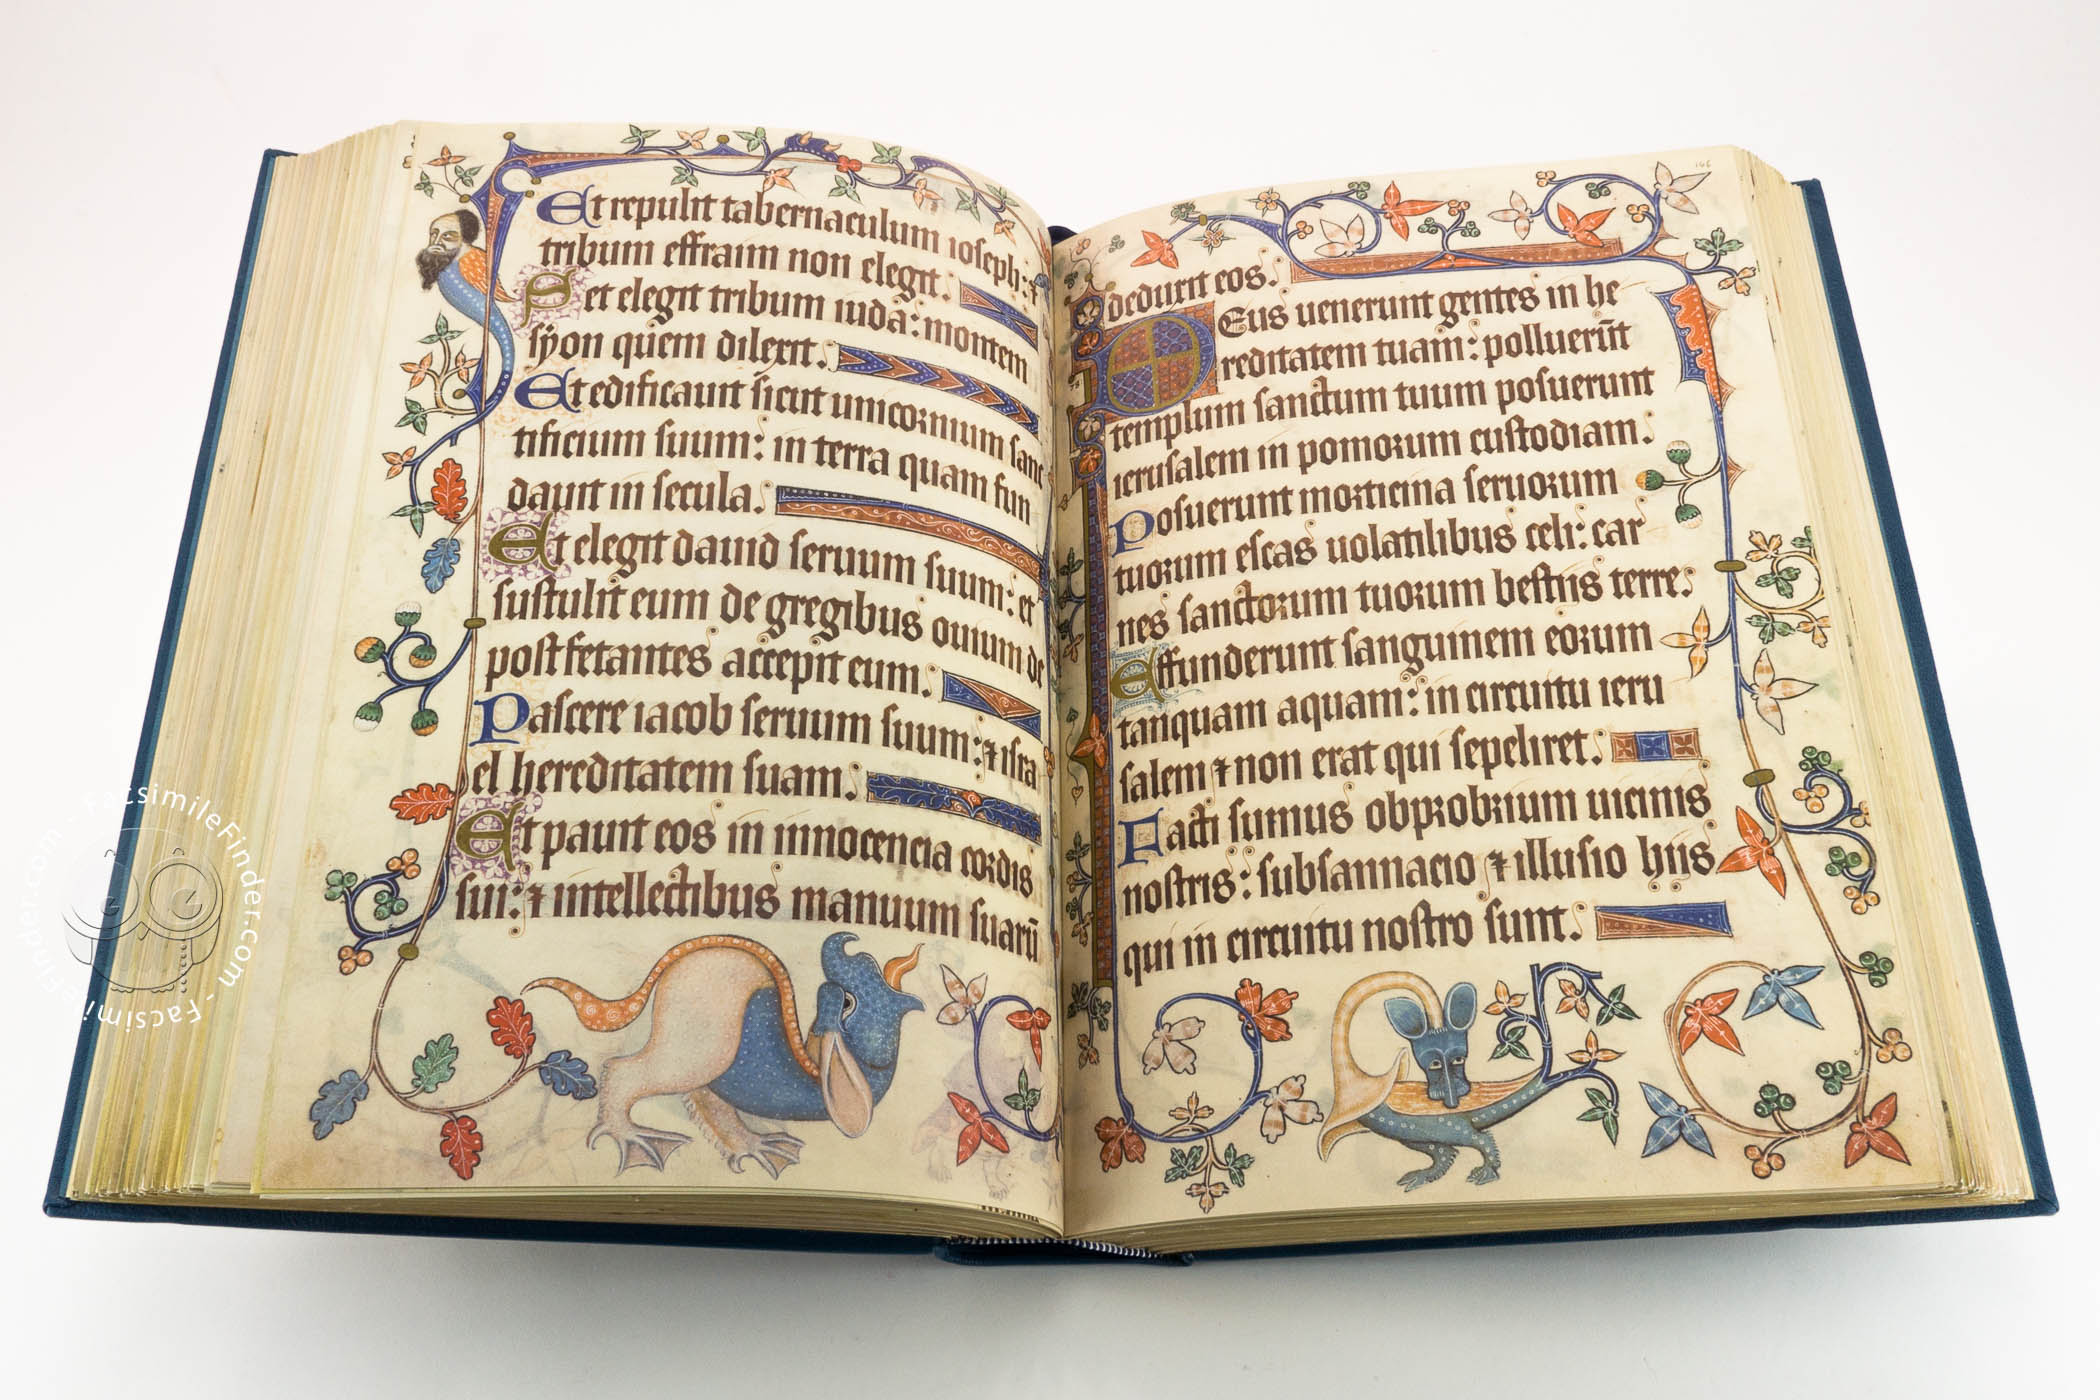 Et repulit tabernaculum ioseph: ⁊
tribum effraim non elegit.
Set elegit tribum iuda: montem
syon quem dilexit.
Et edificauit sicut unicornium sanc
tificium suum: in terra quam fun
dauit in secula.
Et elegit dauid seruum suum: et
sustulit eum de gregibus ouium de
post fetantes accepit eum.
Pascere iacob seruum suum: ⁊ isra
el hereditatem suam.
Et pauit eos in innocencia cordis
sui: ⁊ intellectibus manuum suarū
166
deduxit eos.
Deus uenerunt gentes in he
reditatem tuam: polluerūt
templum sanctum tuum posuerunt
ierusalem in pomorum custodiam.
Posuerunt morticina seruorum
tuorum escas uolatilibus celi: car
nes sanctorum tuorum bestiis terre.
Effunderunt sanguinem eorum
tanquam aquam: in circuitu ieru
salem ⁊ non erat qui sepeliret.
Facti sumus obprobrium uicinis
nostris: subsannacio ⁊ illusio hiis
qui in circuitu nostro sunt.
FacsimileFinder.com - FacsimileFinder.com -